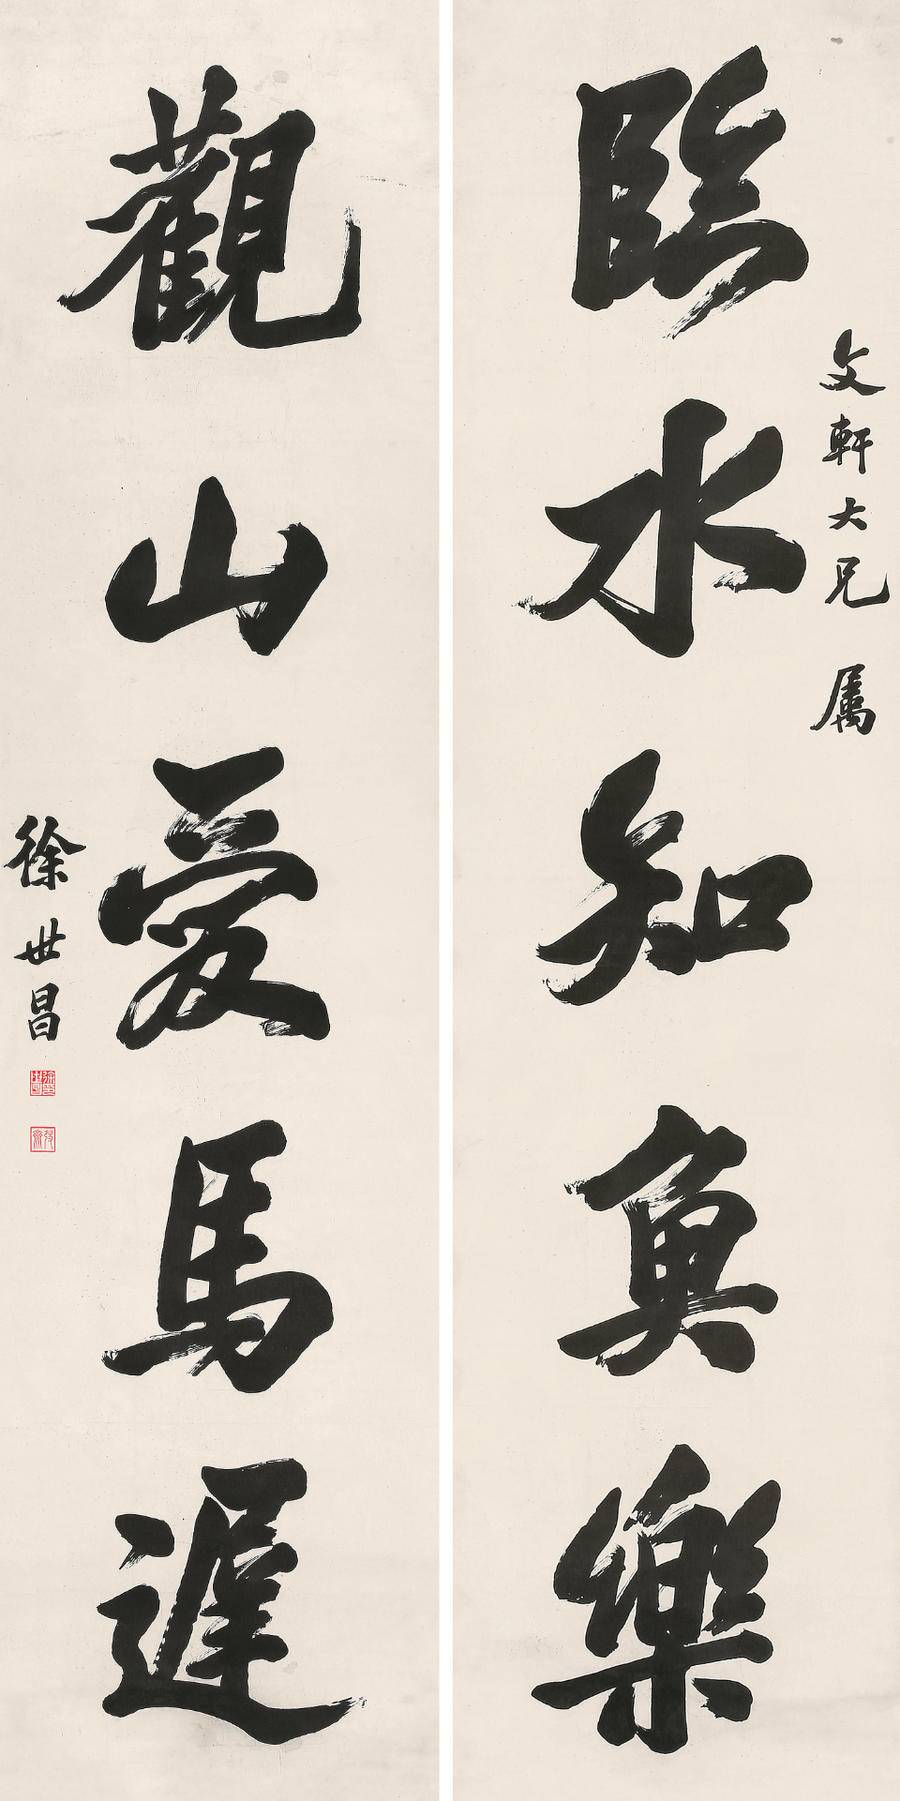 文軒大兄 属
臨水知魚樂
觀山愛馬遲
徐世昌